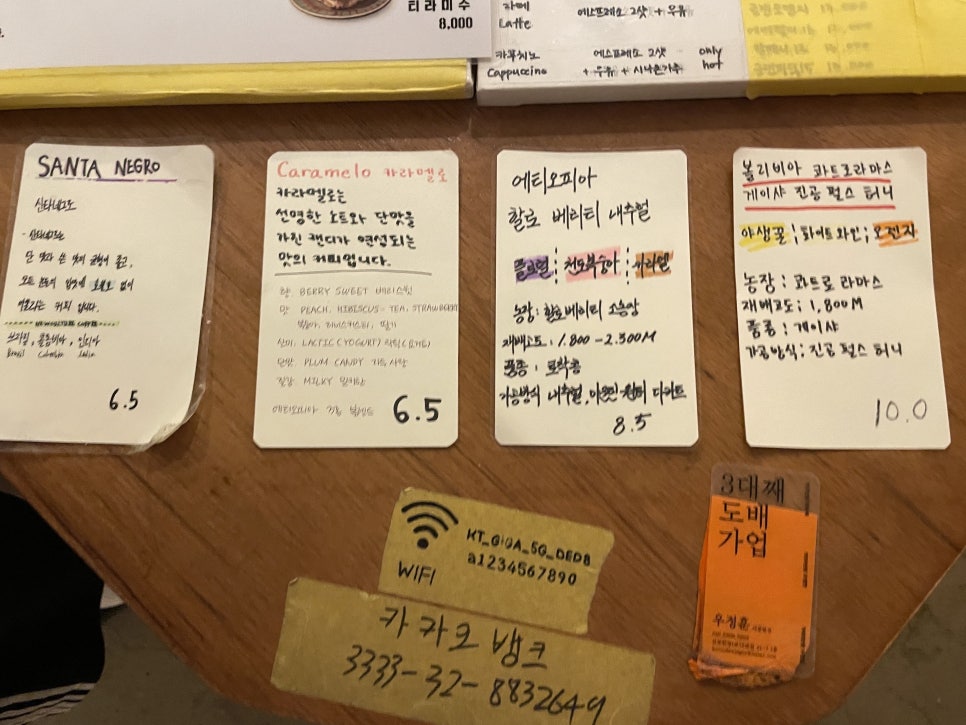 티라미수
8,000
카페
Latte
에스프레소 2샷 + 우유
카푸치노
Cappuccino
에스프레소 2샷
+ 우유 + 시나몬가루
only
hot
SANTA NEGRO
산타네그로
- 산타네그로는
단 맛과 쓴 맛의 균형이 좋고,
커피 입니다.
브라질, 콜롬비아, 인디아
Brazil Colombia India
6.5
Caramelo 카라멜로
카라멜로는
선명한 노트와 단맛을
가진 캔디가 연상되는
맛의 커피입니다.
향. BERRY SWEET 베리스윗
맛 PEACH, HIBISCUS-TEA, STRAWBERRY
복숭아, 히비스커스티, 딸기
산미. LACTIC (YOGURT) 락틱(요거트)
단맛. PLUM CANDY 자두사탕
질감. MILKY 밀키한
에티오피아 블렌드
6.5
에티오피아
할로 베리티 내추럴
플로럴 ; 천도복숭아 ; 캬라멜
농장: 할로 베이티 소농장
재배고도: 1,800 - 2,300M
품종: 토착종
가공방식 내추럴,
8.5
볼리비아 콰트로라마스
게이샤 진공 펄스 허니
야생꿀 ; 화이트와인 ; 오렌지
농장: 콰트로 라마스
재배고도: 1,800M
품종: 게이샤
가공방식: 진공 펄스 허니
10.0
WIFI
KT_GiGA_5G_DED8
a1234567890
카카오 뱅크
3333-32-8832649
3대째
도배
가업
우정훈